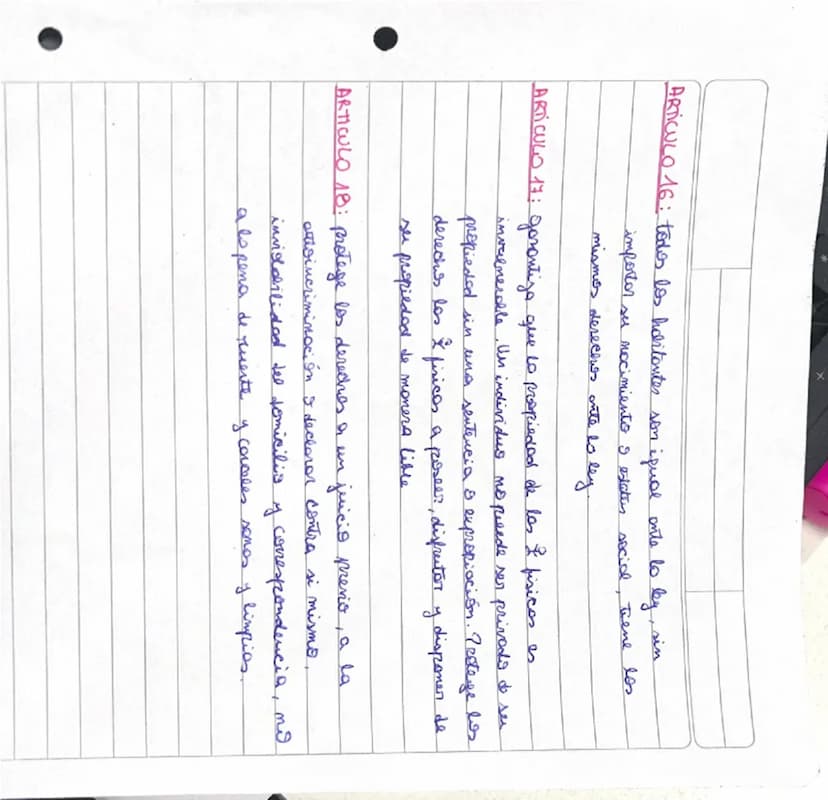 ARTICULO 16: todos los habitantes son igual ante la ley, sin
importar su nacimiento o estatus social, tiene los
mismos derechos ante la ley.
ARTICULO 17: garantiza que la propiedad de las físicas es
invulnerable. Un individuo no puede ser privado de su
propiedad sin una sentencia o expropiación. Protege los
derechos las físicas a poseer, disfrutar y disponer de
su propiedad de manera libre
ARTICULO 18: protege los derechos a un juicio previo, a la
autoincriminación o declarar contra si mismo,
inviolabilidad del domicilio y correspondencia, no
a la pena de muerte y carceles sanas y limpias.